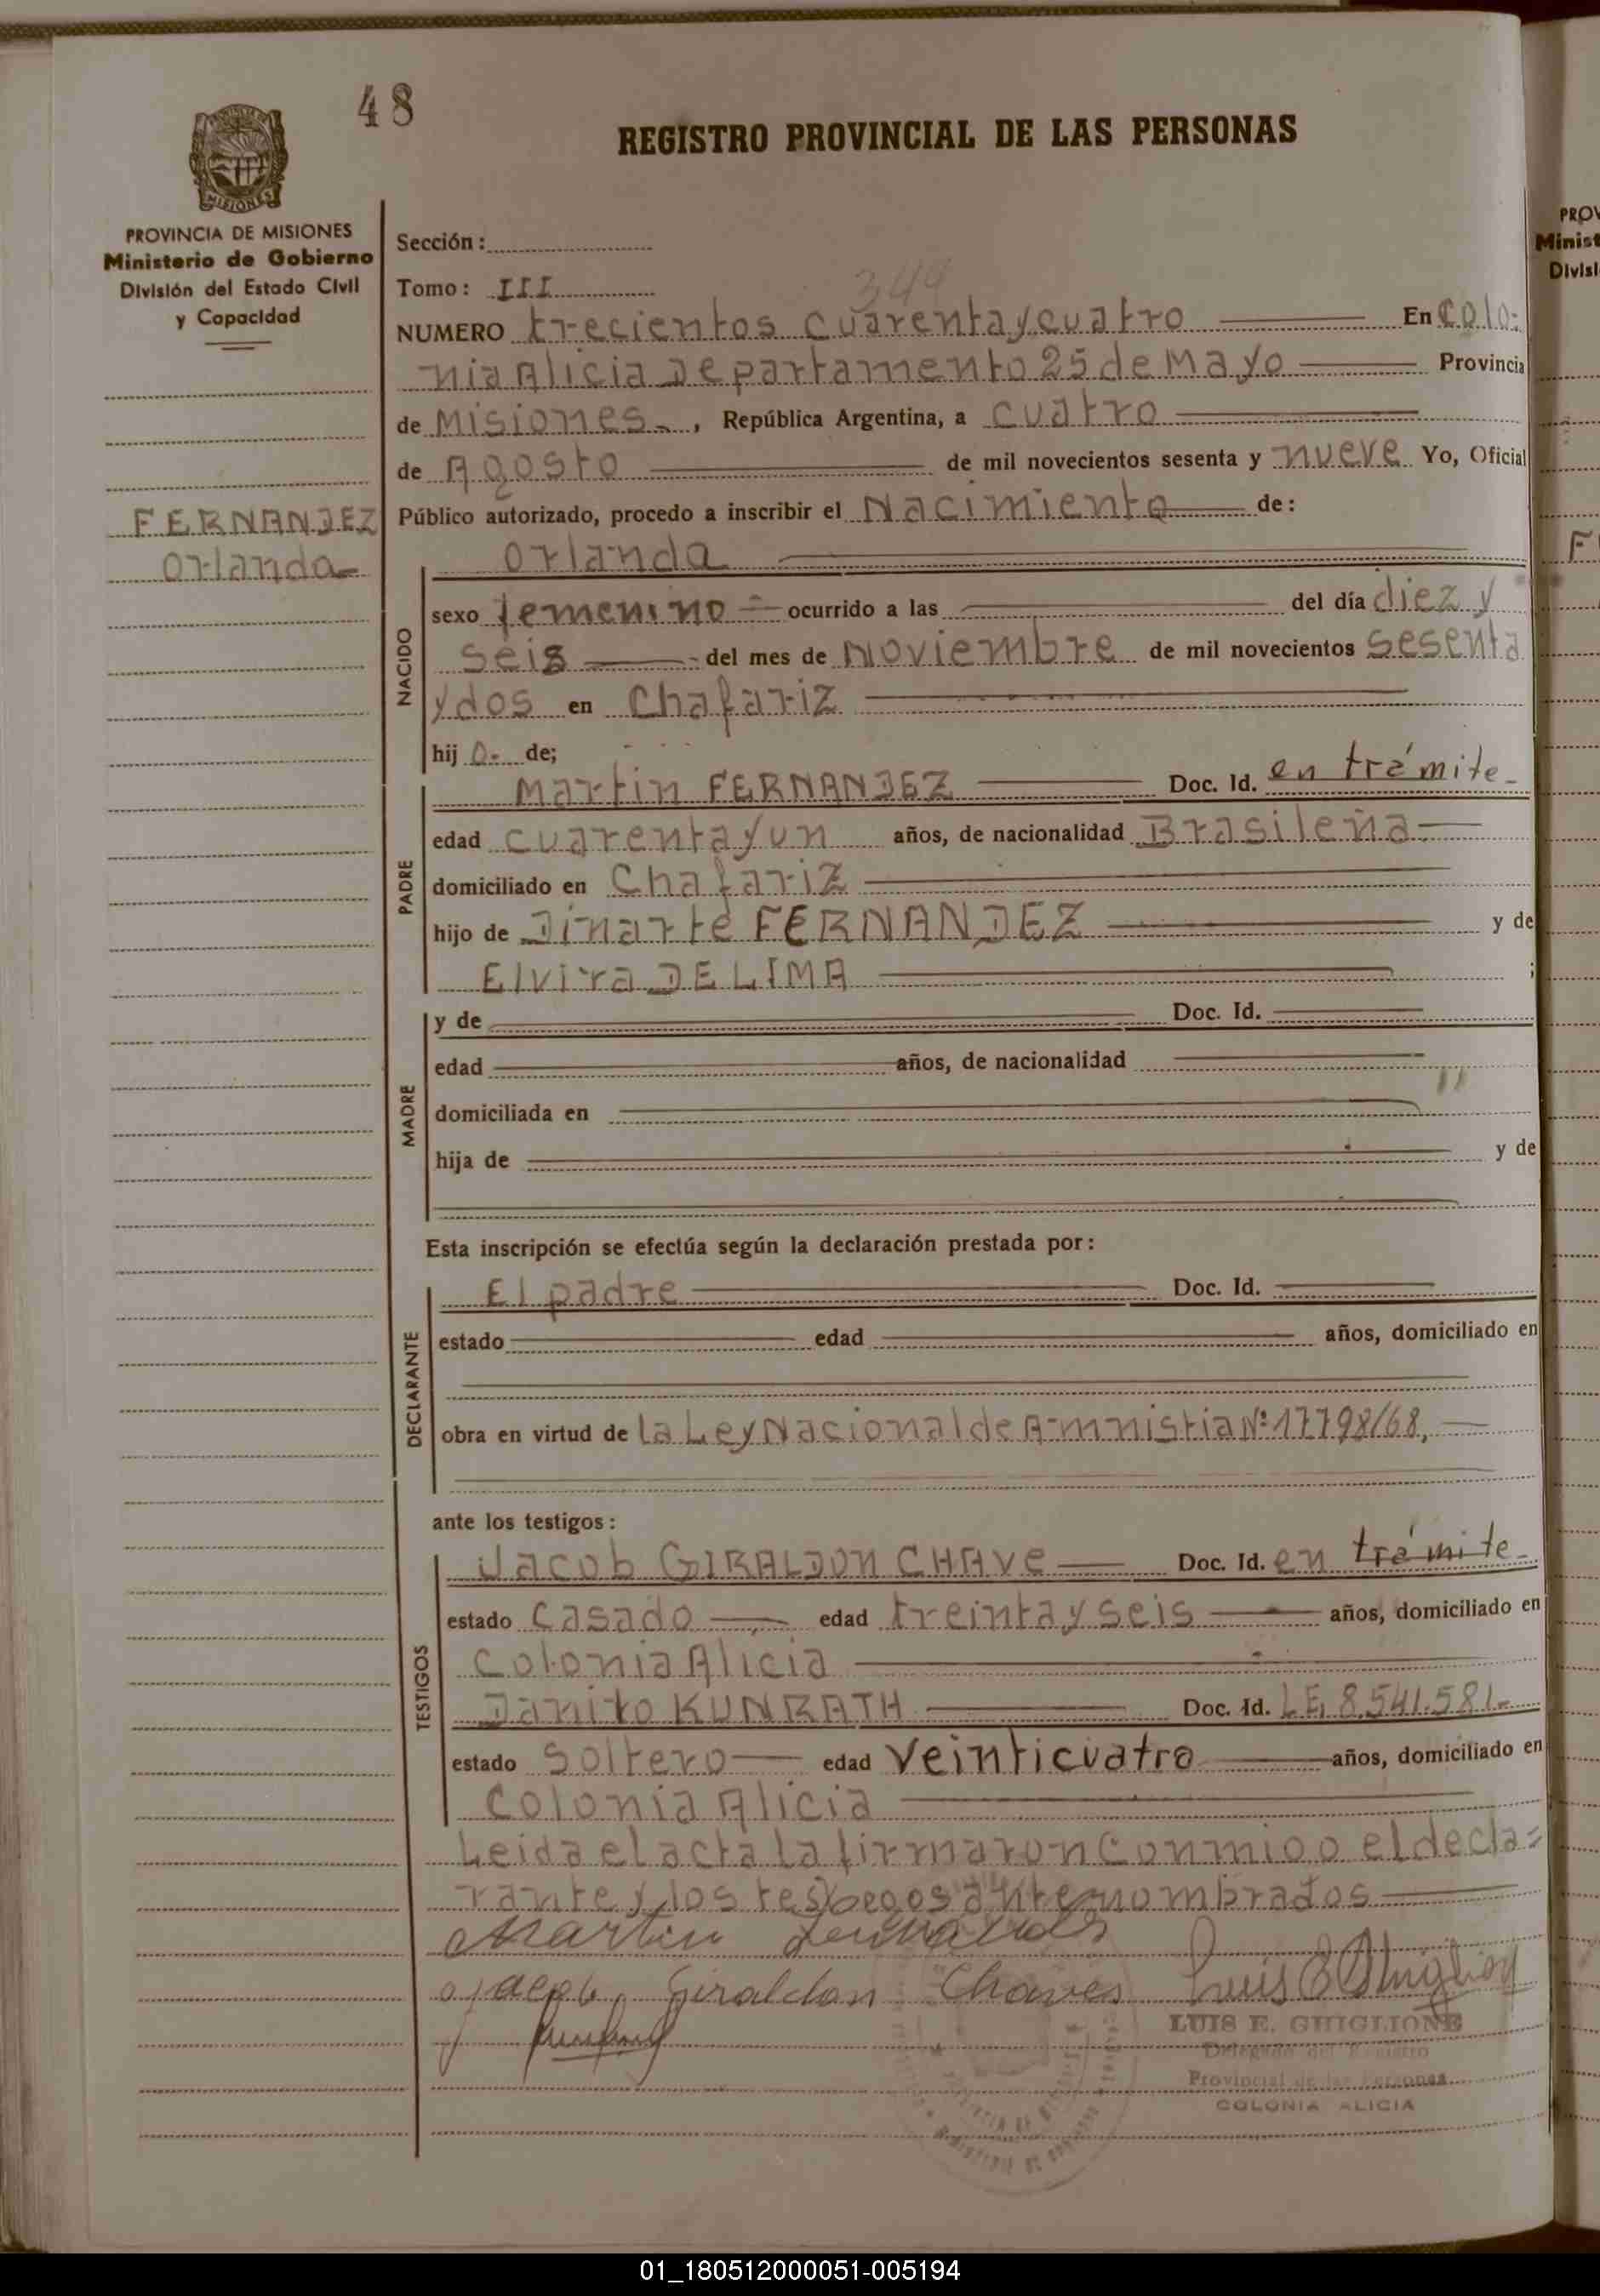 48
REGISTRO PROVINCIAL DE LAS PERSONAS
MISIONES
PROVINCIA DE MISIONES
Ministerio de Gobierno
División del Estado Civil
y Capacidad
FERNANDEZ
Orlanda
Sección:
Tomo: III
344
NUMERO trecientos cuarenta y cuatro En Colo-
nia Alicia Departamento 25 de Mayo Provincia
de Misiones., República Argentina, a cuatro
de Agosto de mil novecientos sesenta y nueve Yo, Oficial
Público autorizado, procedo a inscribir el Nacimiento de:
Orlanda
NACIDO
sexo femenino ocurrido a las del día diez y
seis del mes de Noviembre de mil novecientos sesenta
y dos en Chafariz
hij o- de;
PADRE
Martin FERNANDEZ Doc. Id. en trámite
edad cuarenta y un años, de nacionalidad Brasileña
domiciliado en Chafariz
hijo de Dinarte FERNANDEZ y de
Elvira DE LIMA ;
MADRE
y de Doc. Id.
edad años, de nacionalidad
domiciliada en
hija de y de
Esta inscripción se efectúa según la declaración prestada por:
DECLARANTE
El padre Doc. Id.
estado edad años, domiciliado en
obra en virtud de la Ley Nacional de Amnistia Nº 17798/68,
ante los testigos:
TESTIGOS
Jacob GIRALDON CHAVE Doc. Id. en trámite
estado casado edad treinta y seis años, domiciliado en
Colonia Alicia
Danito KUNRATH Doc. Id. LE, 8.541.581-
estado Soltero edad veinticuatro años, domiciliado en
Colonia Alicia
Leida el acta la firmaron conmigo el decla=
rante y los testigos antenombrados
Martin Fernandes
Jacob Giraldon Chaves Luis E Ghiglione
LUIS E. GHIGLIONE
Delegado del Registro
Provincial de las Personas
COLONIA ALICIA
PROV
Minist
Divisi
F
01_180512000051-005194